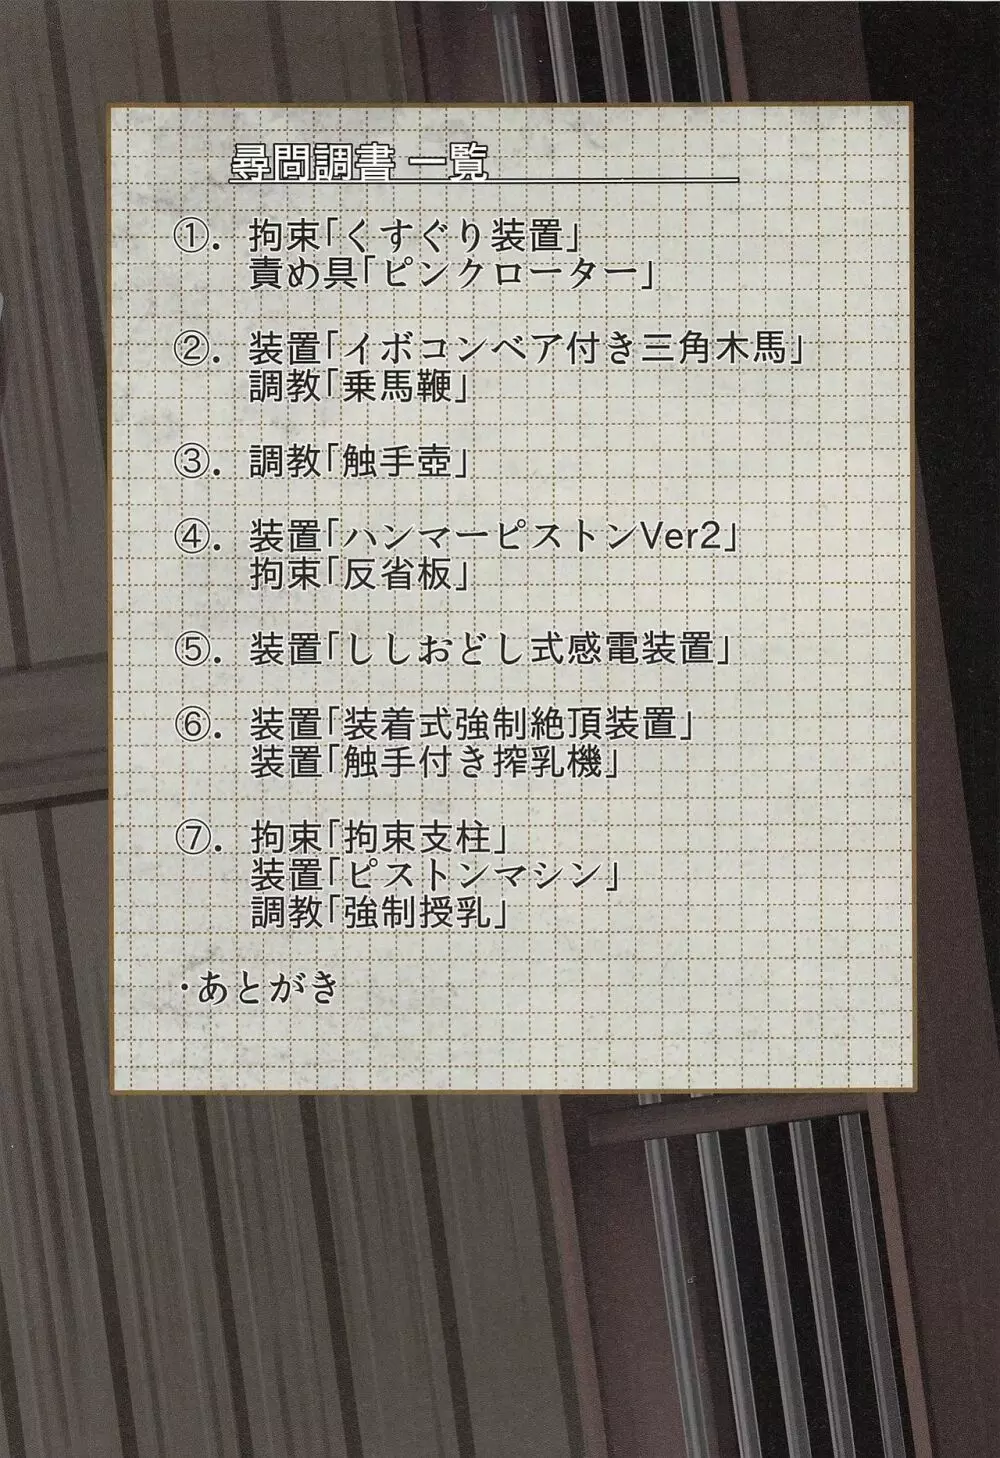 尋問調書 一覧
①. 拘束「くすぐり装置」
責め具「ピンクローター」
②. 装置「イボコンベア付き三角木馬」
調教「乗馬鞭」
③. 調教「触手壺」
④. 装置「ハンマーピストンVer2」
拘束「反省板」
⑤. 装置「ししおどし式感電装置」
⑥. 装置「装着式強制絶頂装置」
装置「触手付き搾乳機」
⑦. 拘束「拘束支柱」
装置「ピストンマシン」
調教「強制授乳」
・あとがき